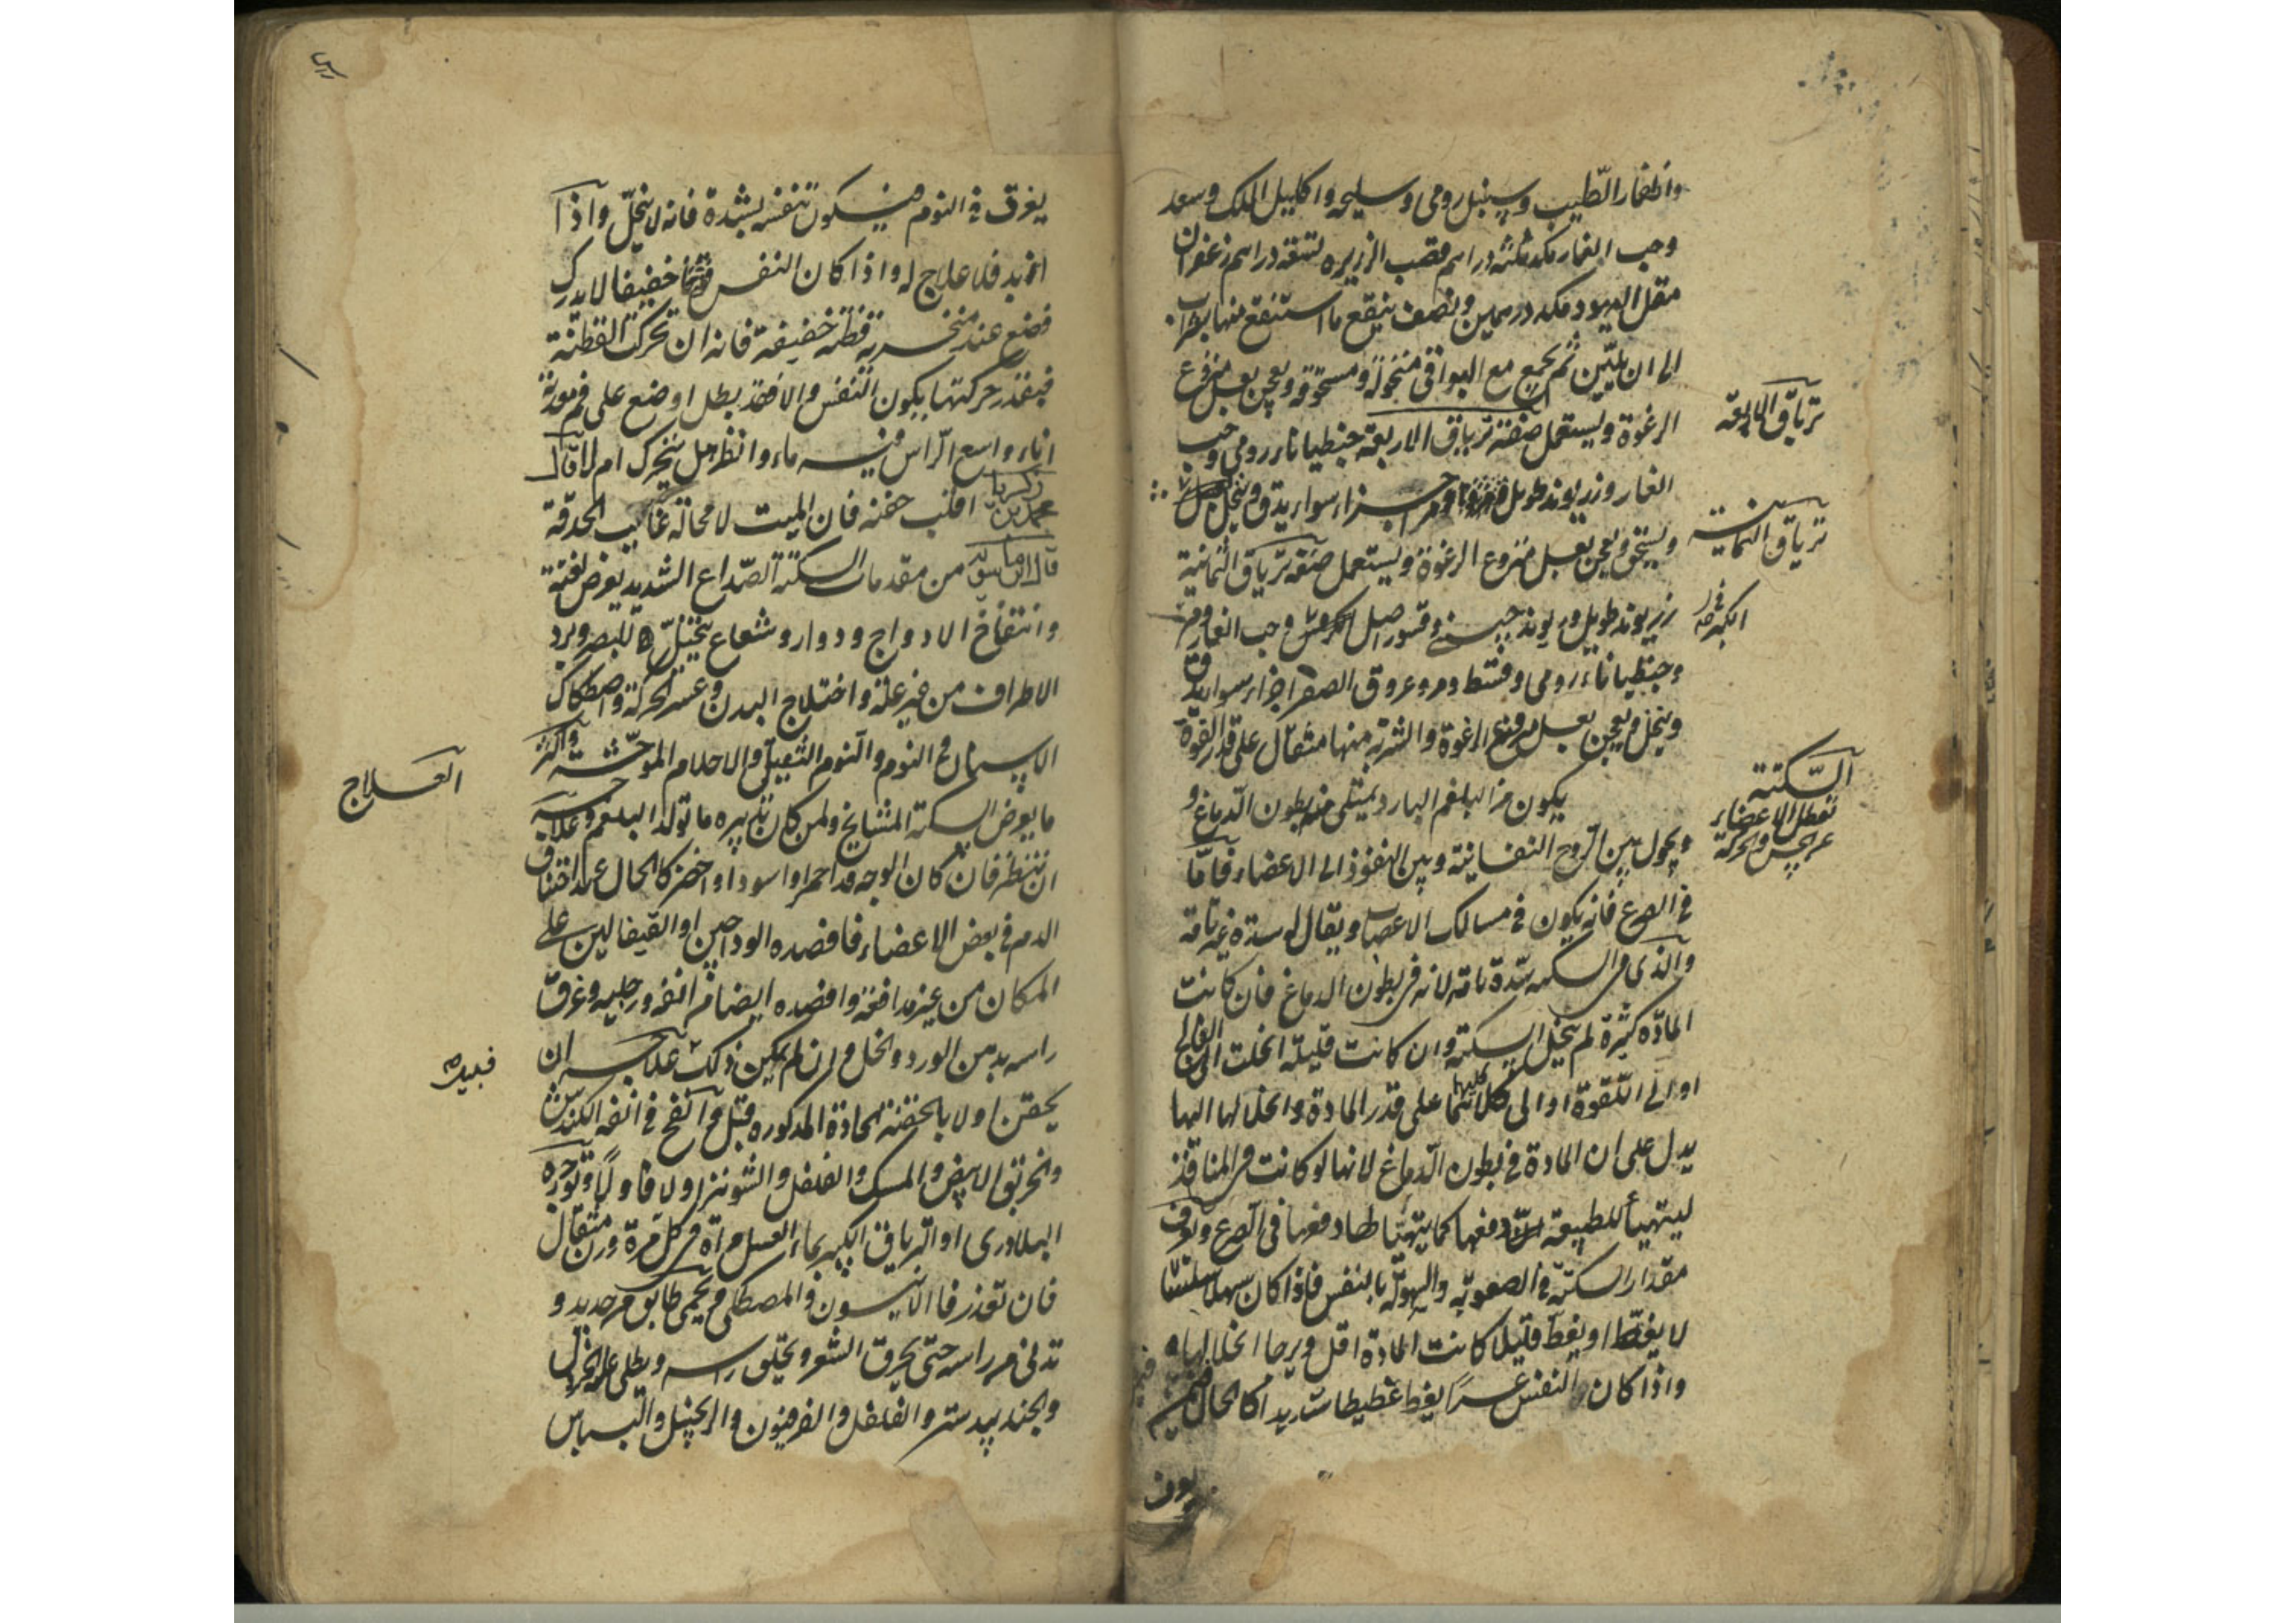 واظفار الطيب وسنبل رومى وسليخه واكليل الملك وسعد
وحب الغار مكد ثلثه دراهم قصب الزريره لتسقه دراهم زعفران
مقل اليهود مكد درهمين ونصف ينقع ما استنقع منها بشراب
الى ان يلين ثم يجمع مع البواقى منخولة ومسحوقه ويعجن بعسل منزوع
الرغوة ويستعمل صفة ترياق الاربعة جنطيانا رومى وحب
ترياق الاربعة
الغار وزريوند طويل ومر اجزاء سواء يدق وينخل
ويستحق ويعجن بعسل منزوع الرغوة ويستعمل صفة ترياق الثمانية
ترياق الثمانية
زريوند طويل وريوند چينى وقشور اصل الكبر وحب الغار ومر
وجنطيانا رومى وقسط ومر وعروق الصفر اجزاء سواء يدق
وينخل ويعجن بعسل منزوع الرغوة والشربة منها مثقال على قدر القوة
السكتة
تعطل الاعضاء
عن الحس والحركة
يكون من البلغم البارد يمتلى منه بطون الدماغ و
ويحول بين الروح النفسانية وبين النفوذ الى الاعضاء فاما
فى الصرع فانه يكون فى مسالك الاعصاب ويقال له سدة غير تامة
والذى فى السكته سدة تامة لانه فى بطون الدماغ فان كانت
المادة كثيرة لم تنحل السكتة وان كانت قليلة انحلت الى الفالج
او الى اللقوة او الى كليهما على قدر المادة وانحلالها اليها
يدل على ان المادة فى بطون الدماغ لانها لو كانت فى المنافذ
ليتهيأ للطبيعة دفعها كما يتهيأ لها دفعها فى الصرع ويعرف
مقدار السكتة فى الصعوبة والسهولة بالنفس فاذا كان سهلا سلسا
لا يغط او يغط قليلا كانت المادة اقل ويرجا انحلالها
واذا كان النفس عسرا يغط غطيطا شديدا كالحال فيمن
يعرف
يغرق فى النوم فيكون تنفسه بشدة فانه لا ينحل واذا
ازبد فلا علاج له واذا كان النفس خفيفا لا يدرك
فضع عند منخريه قطنه خفيفة فانه ان تحركت القطنة
فبقدر حركتها يكون النفس والا فقد بطل او ضع على فم معدته
اناء واسع الراس فيه ماء وانظر هل يتحرك ام لا قال
محمد بن زكريا اقلب جفنه فان الميت لا محالة غايب الحدقة
قال ابن ماسويه من مقدمات السكتة الصداع الشديد يعرض بغتة
وانتفاخ الاوداج ودوار وشعاع يتخيل للبصر وبرد
الاطراف من غير علة واختلاج البدن وعسر الحركة واصطكاك
الاسنان فى النوم والنوم الثقيل والاحلام الموحشة واكثر
ما يعرض السكتة المشايخ ولمن كان تدبيره ما تولد البلغم وعلاجه
العلاج
ان تنظر فان كان الوجه قد احمر او اسود او اخضر كالحال عند اختناق
الدم فى بعض الاعضاء فافصده الوداجين او القيفالين على
المكان من غير مدافعة وافصده ايضا فى انفه ورجليه وغرق
راسه بدهن الورد والخل وان لم يكن ذلك علاجه ان
يحقن اولا بالحقنة الحادة المذكوره قبل وانفخ فى انفه الكندس
والخربق الابيض والمسك والفلفل والشونيز اولا فاولا وتوجره
البلادرى او الترياق الكبير بماء العسل مراة فى كل مرة وزن مثقال
فان تعذر فالانيسون والمصطكى ويحمى طابق من حديد و
تدنى من راسه حتى يحرق الشعر ويحلق راسه ويطلى عليه الخردل
والجند بيدستر والفلفل والفرفيون والزنجبيل والبسباس